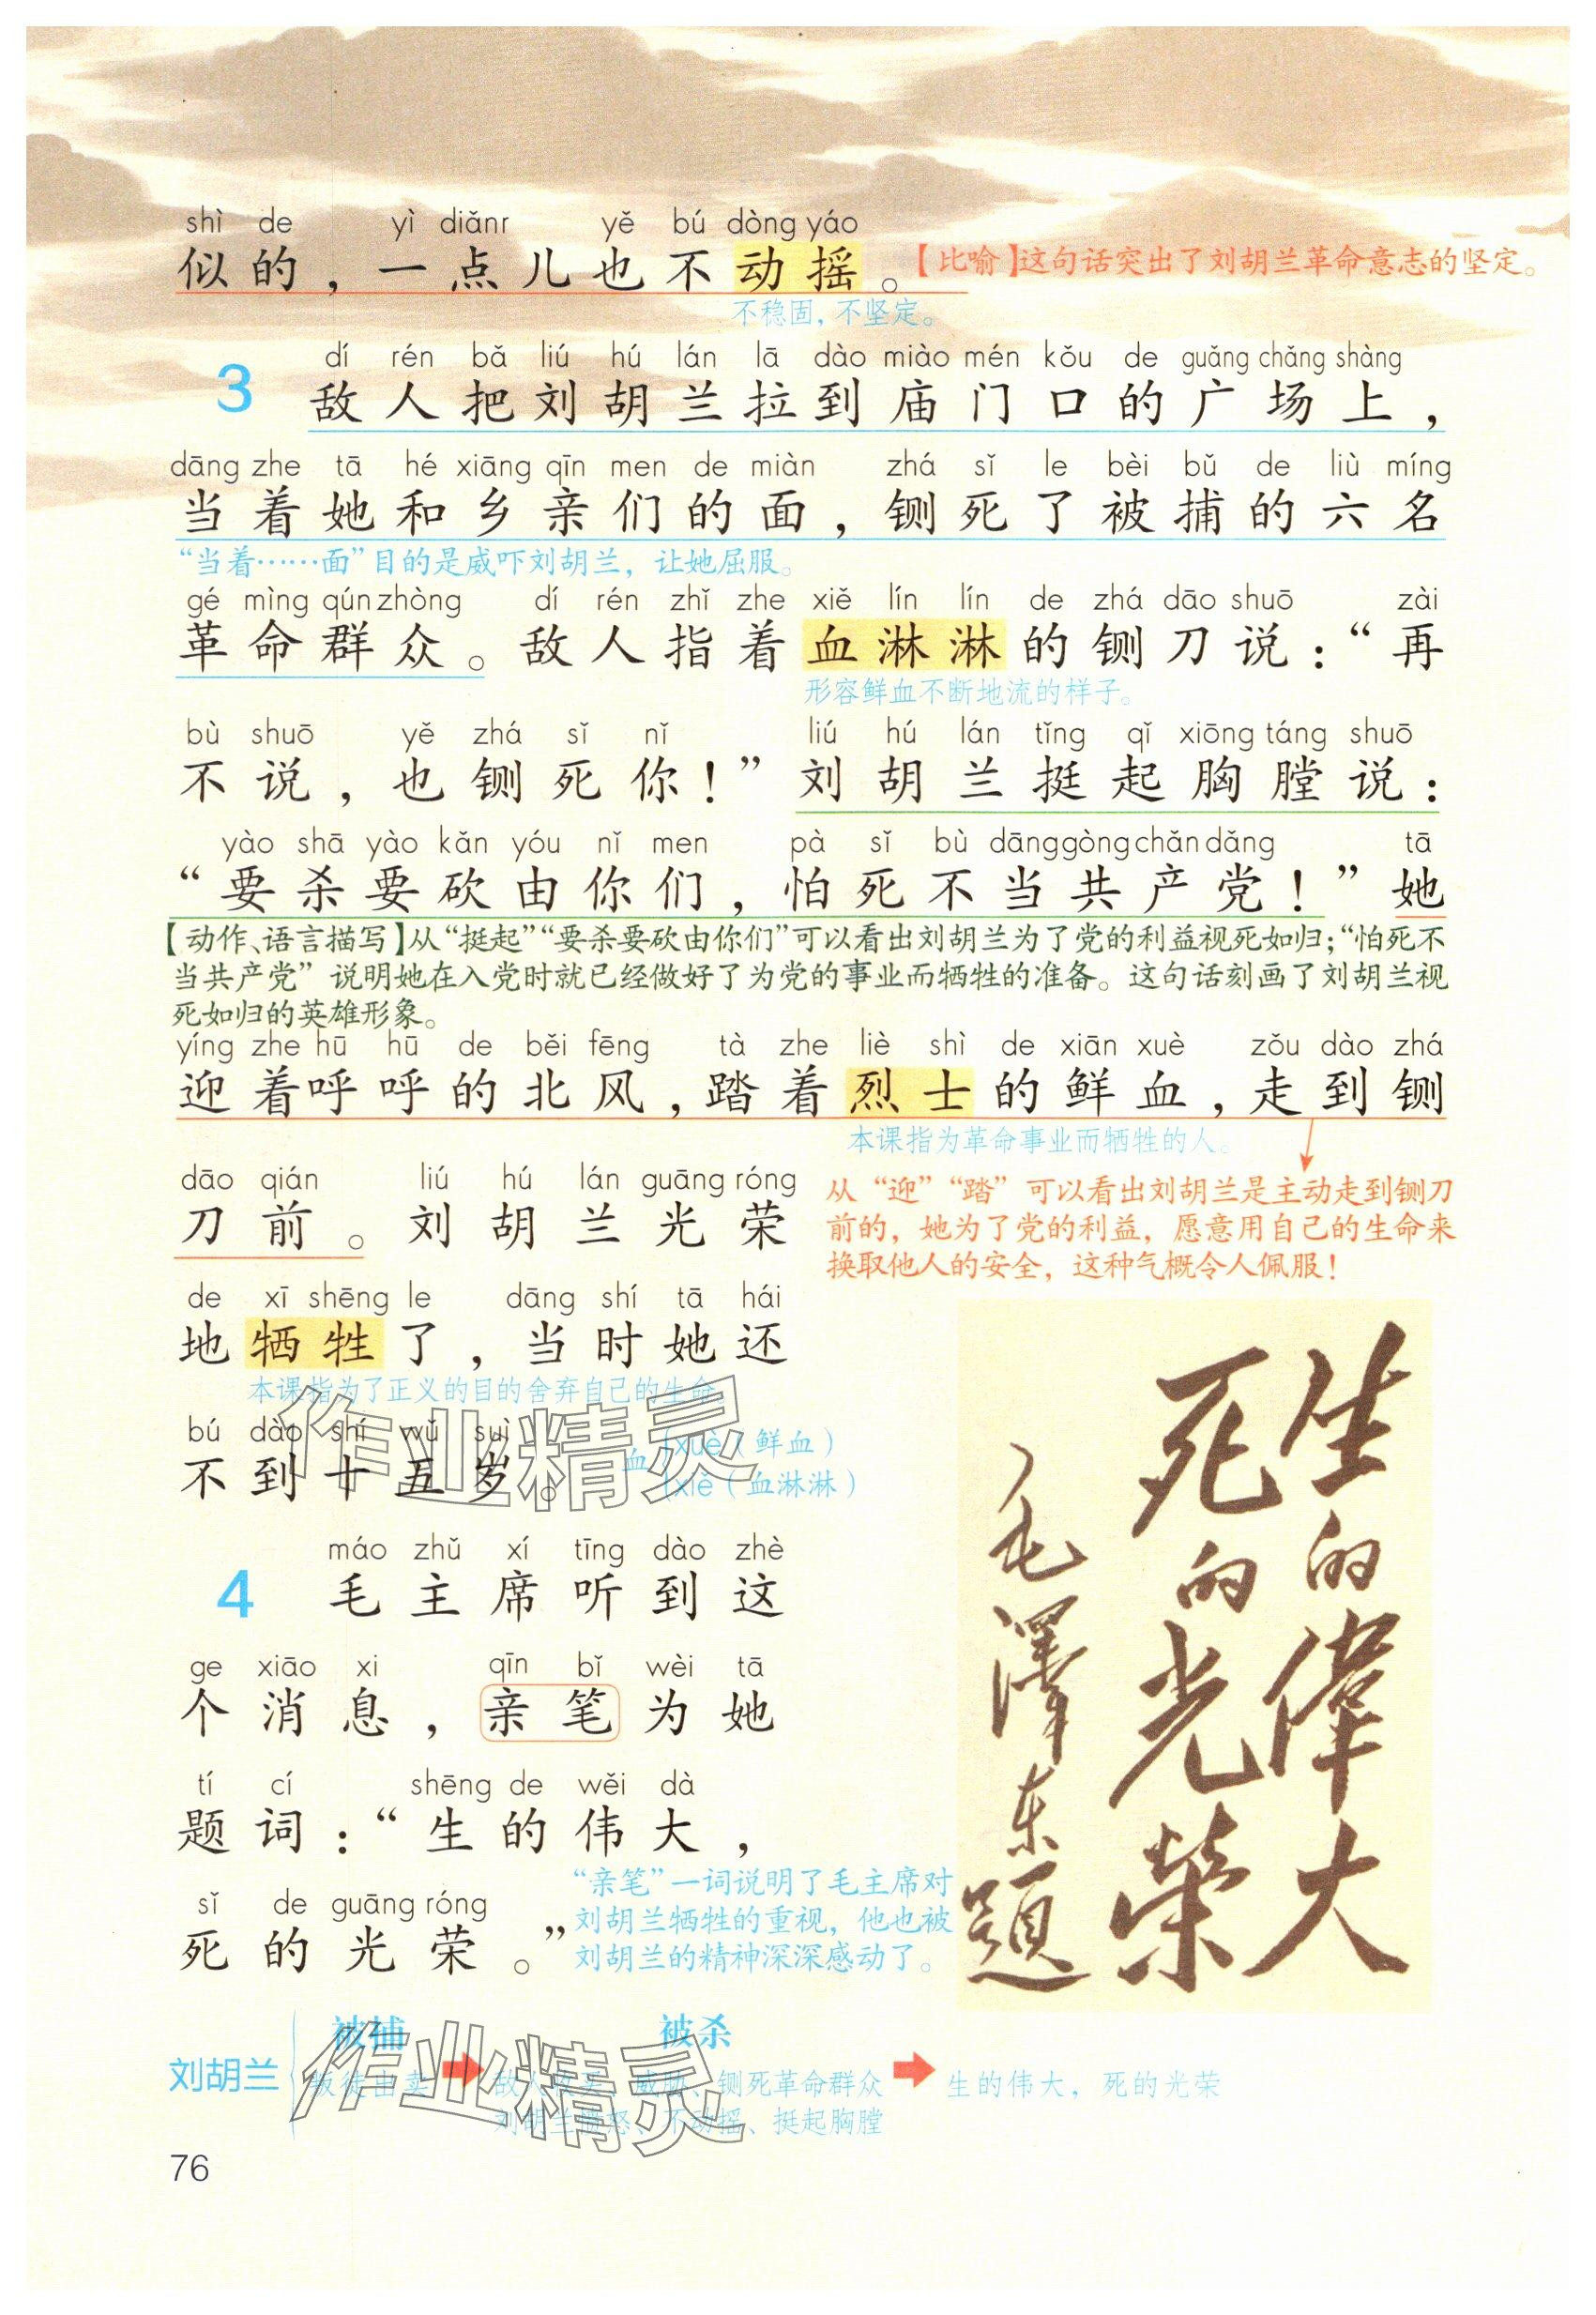 shì de yì diǎnr yě bú dòng yáo
似的，一点儿也不动摇。【比喻】这句话突出了刘胡兰革命意志的坚定。
不稳固，不坚定。
dí rén bǎ liú hú lán lā dào miào mén kǒu de guǎng chǎng shàng
3 敌人把刘胡兰拉到庙门口的广场上，
dāng zhe tā hé xiāng qīn men de miàn zhá sǐ le bèi bǔ de liù míng
当着她和乡亲们的面，铡死了被捕的六名
“当着……面”目的是威吓刘胡兰，让她屈服。
gé mìng qún zhòng dí rén zhǐ zhe xiě lín lín de zhá dāo shuō zài
革命群众。敌人指着血淋淋的铡刀说：“再
形容鲜血不断地流的样子。
bù shuō yě zhá sǐ nǐ liú hú lán tǐng qǐ xiōng táng shuō
不说，也铡死你！”刘胡兰挺起胸膛说：
yào shā yào kǎn yóu nǐ men pà sǐ bù dāng gòng chǎn dǎng tā
“要杀要砍由你们，怕死不当共产党！”她
【动作、语言描写】从“挺起”“要杀要砍由你们”可以看出刘胡兰为了党的利益视死如归；“怕死不
当共产党”说明她在入党时就已经做好了为党的事业而牺牲的准备。这句话刻画了刘胡兰视
死如归的英雄形象。
yíng zhe hū hū de běi fēng tà zhe liè shì de xiān xuè zǒu dào zhá
迎着呼呼的北风，踏着烈士的鲜血，走到铡
本课指为革命事业而牺牲的人。
dāo qián liú hú lán guāng róng
刀前。刘胡兰光荣
从“迎”“踏”可以看出刘胡兰是主动走到铡刀
前的，她为了党的利益，愿意用自己的生命来
换取他人的安全，这种气概令人佩服！
de xī shēng le dāng shí tā hái
地牺牲了，当时她还
本课指为了正义的目的舍弃自己的生命。
bú dào shí wǔ suì
不到十五岁。
血 xuè（鲜血）
xiě（血淋淋）
作业精灵
máo zhǔ xí tīng dào zhè
4 毛主席听到这
ge xiāo xi qīn bǐ wèi tā
个消息，亲笔为她
tí cí shēng de wěi dà
题词：“生的伟大，
sǐ de guāng róng
死的光荣。”
“亲笔”一词说明了毛主席对
刘胡兰牺牲的重视，他也被
刘胡兰的精神深深感动了。
生的偉大
死的光榮
毛澤东題
被捕 被杀
刘胡兰 叛徒出卖 威胁、铡死革命群众 生的伟大，死的光荣
不动摇、挺起胸膛
作业精灵
76